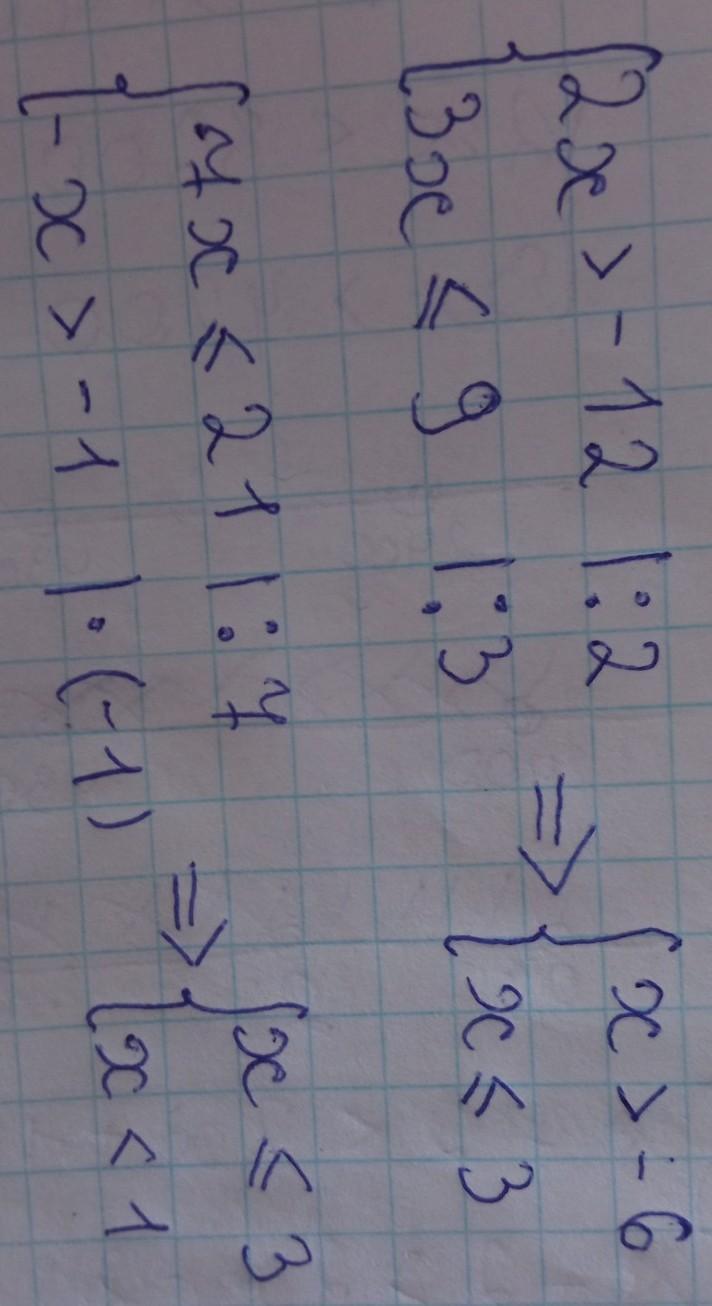 2x > -12 |:2
3x ≤ 9 |:3
⇒
x > -6
x ≤ 3
7x ≤ 21 |:7
-x > -1 |·(-1)
⇒
x ≤ 3
x < 1